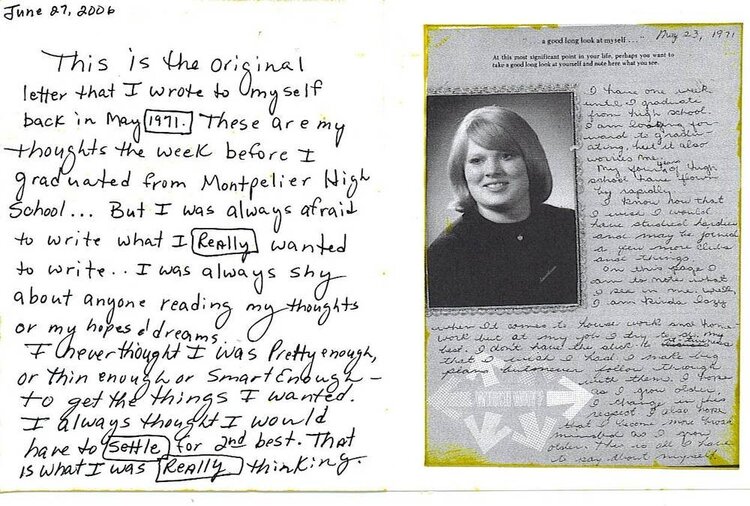 June 27, 2006
This is the original
letter that I wrote to myself
back in May 1971. These are my
thoughts the week before I
graduated from Montpelier High
School... But I was always afraid
to write what I Really wanted
to write.. I was always shy
about anyone reading my thoughts
or my hopes & dreams.
I never thought I was Pretty enough,
or thin enough or Smart Enough –
to get the things I wanted.
I always thought I would
have to Settle for 2nd best. That
is what I was Really thinking.
a good long look at myself . . .
May 23, 1971
At this most significant point in your life, perhaps you want to
take a good long look at yourself and note here what you see.
I have one week
until I graduate
from high school.
I am looking for-
ward to gradu-
ating, but it also
worries me.
My years of high
school have flown
by rapidly.
I know now that
I wish I would
have studied harder
and maybe joined
a few more clubs
and things.
On this page I
am to note what
I see in me. Well,
I am kinda lazy
when it comes to house work and home
work but at my job I try to do my
best. I don't have the
that I wish I had. I make big
plans but never follow through
with them. I hope
as I grow older
I change in this
respect. I also hope
that I become more broad
minded as I grow
older. That is all I have
to say about myself.